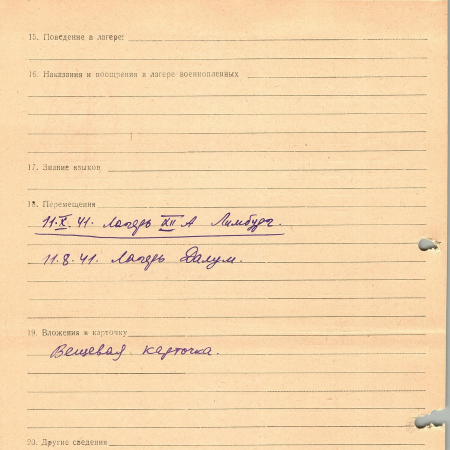 15. Поведение в лагере:
16. Наказания и поощрения в лагере военнопленных
17. Знание языков
18. Перемещения
11.X.41. Лагерь XII А Лимбург.
11.8.41. Лагерь Далум.
19. Вложения в карточку
Вещевая карточка.
20. Другие сведения